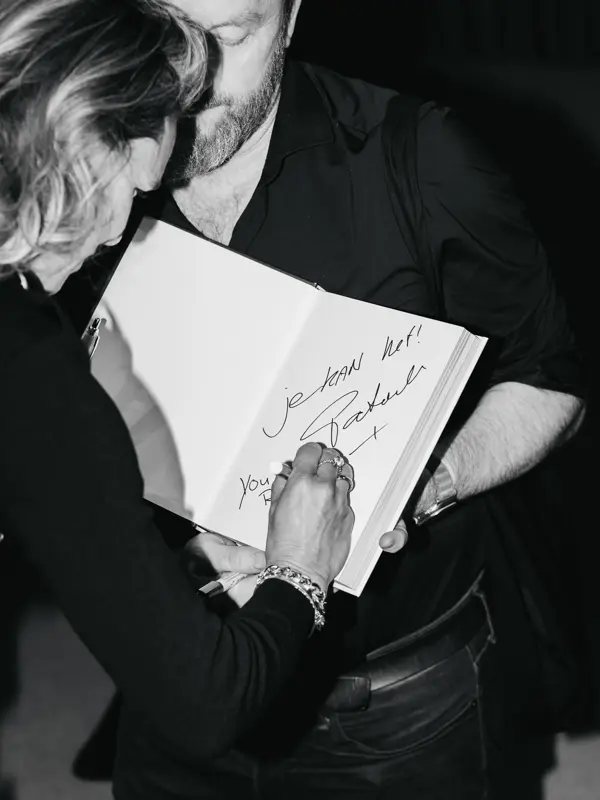 je kAN het!
You
R